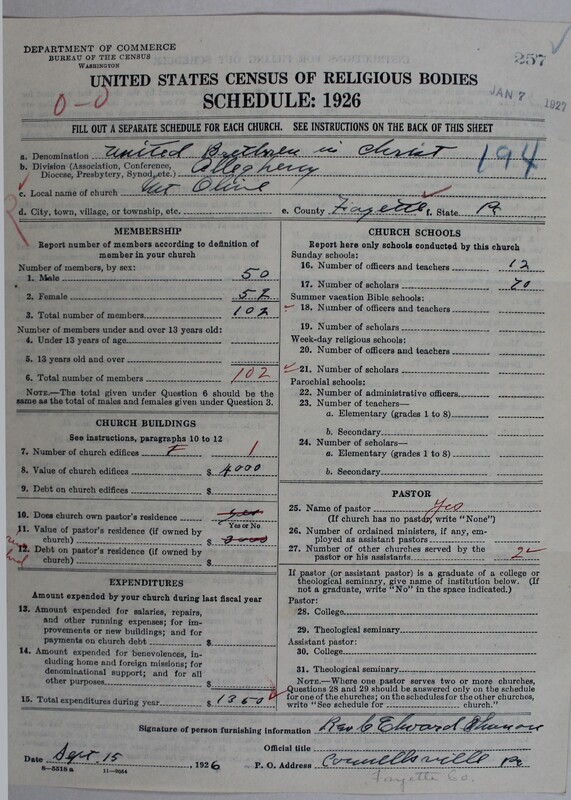 DEPARTMENT OF COMMERCE
BUREAU OF THE CENSUS
WASHINGTON
257
UNITED STATES CENSUS OF RELIGIOUS BODIES
SCHEDULE: 1926
0-0
JAN 7 1927
FILL OUT A SEPARATE SCHEDULE FOR EACH CHURCH. SEE INSTRUCTIONS ON THE BACK OF THIS SHEET
a. Denomination United Brethren in Christ
194
b. Division (Association, Conference, Diocese, Presbytery, Synod, etc.) Allegheny
c. Local name of church Mt Olive
d. City, town, village, or township, etc. e. County Fayette f. State Pa
MEMBERSHIP
Report number of members according to definition of
member in your church
Number of members, by sex:
1. Male 50
2. Female 52
3. Total number of members 102
Number of members under and over 13 years old:
4. Under 13 years of age
5. 13 years old and over
6. Total number of members 102
NOTE.—The total given under Question 6 should be
same as the total of males and females given under Question 3.
CHURCH BUILDINGS
See instructions, paragraphs 10 to 12
7. Number of church edifices 1
8. Value of church edifices $ 4000
9. Debt on church edifices $
10. Does church own pastor's residence yes
Yes or No
11. Value of pastor's residence (if owned by
church) $
12. Debt on pastor's residence (if owned by
church) $
EXPENDITURES
Amount expended by your church during last fiscal year
13. Amount expended for salaries, repairs,
and other running expenses; for im-
provements or new buildings; and for
payments on church debt $
14. Amount expended for benevolences, in-
cluding home and foreign missions; for
denominational support; and for all
other purposes $
15. Total expenditures during year $ 1350
CHURCH SCHOOLS
Report here only schools conducted by this church
Sunday schools:
16. Number of officers and teachers 12
17. Number of scholars 70
Summer vacation Bible schools:
18. Number of officers and teachers
19. Number of scholars
Week-day religious schools:
20. Number of officers and teachers
21. Number of scholars
Parochial schools:
22. Number of administrative officers
23. Number of teachers—
a. Elementary (grades 1 to 8)
b. Secondary
24. Number of scholars—
a. Elementary (grades 1 to 8)
b. Secondary
PASTOR
25. Name of pastor Yes
(If church has no pastor, write "None")
26. Number of ordained ministers, if any, em-
ployed as assistant pastors
27. Number of other churches served by the
pastor or his assistants 2
If pastor (or assistant pastor) is a graduate of a college or
theological seminary, give name of institution below. (If
not a graduate, write "No" in the space indicated.)
Pastor:
28. College
29. Theological seminary
Assistant pastor:
30. College
31. Theological seminary
NOTE.—Where one pastor serves two or more churches,
Questions 28 and 29 should be answered only on the schedule
for one of the churches; on the schedules for the other churches,
write "See schedule for church."
Signature of person furnishing information Rev C Edward
Official title
Date Sept 15, 1926 P. O. Address Connellsville Pa
8—5518 a
Fayette Co.